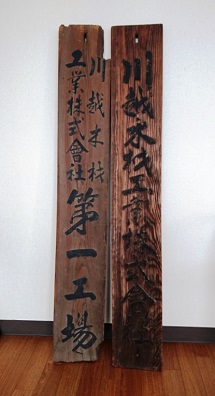 川越木材工業株式會社
川越木材
工業株式會社
第一工場